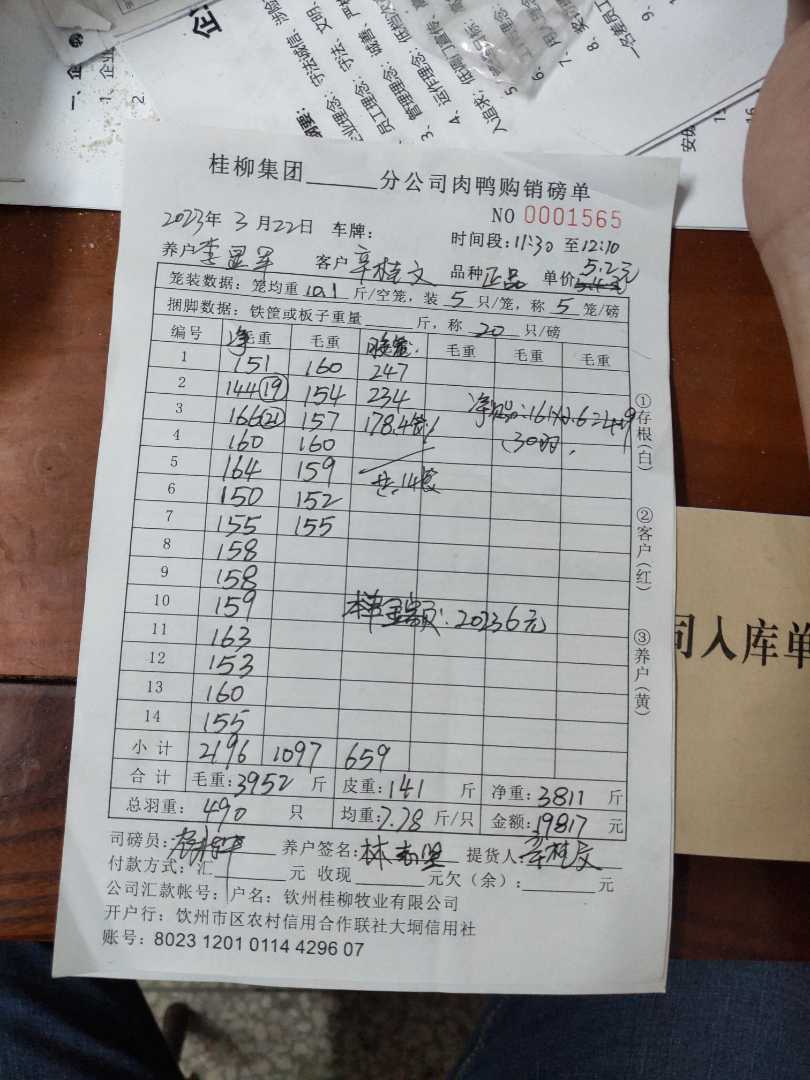 一、企业
1、企业
2
摘要：
守法诚信
守法、文明、
员工理念：诚善、严格
3、管理理念：
4、运作理念：
人追求，
5
6、
7、用人理念
8、
一名差员工
9、
桂柳集团______分公司肉鸭购销磅单
NO 0001565
2023年 3月22日 车牌： 时间段：11:30 至12:10
养户 李显军 客户 辛桂文 品种 正品 单价 5.2元
笼装数据：笼均重 10.1 斤/空笼，装 5 只/笼，称 5 笼/磅
捆脚数据：铁筐或板子重量____斤，称 20 只/磅
编号 净 毛重 毛重 毛重 毛重 毛重
1 151 160 247
2 144⑲ 154 234
3 166㉑ 157 178.4笼
4 160 160
5 164 159 共14笼
6 150 152
7 155 155
8 158
9 158
10 159 本单金额：20236元
11 163
12 153
13 160
14 155
小计 2196 1097 659
合计 毛重：3952 斤 皮重：141 斤 净重：3811 斤
总羽重：490 只 均重：7.78 斤/只 金额：19817 元
司磅员： 养户签名：林 提货人：辛桂文
付款方式：汇______元 收现______元欠（余）：______元
公司汇款帐号：户名：钦州桂柳牧业有限公司
开户行：饮州市区农村信用合作联社大垌信用社
账号：8023 1201 0114 4296 07
①存根（白）
②客户（红）
③养户（黄）
同入库单